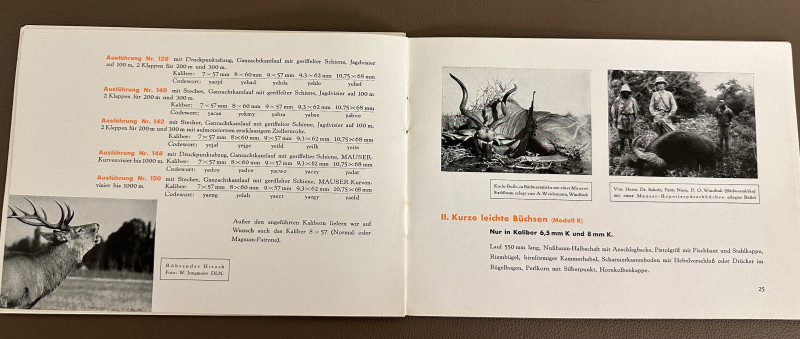 Ausführung Nr. 128 mit Druckpunktabzug, Ganzachtkantlauf mit geriffelter Schiene, Jagdvisier
auf 100 m, 2 Klappen für 200 m und 300 m.
Kaliber: 7×57 mm 8×60 mm 9×57 mm 9,3×62 mm 10,75×68 mm
Codewort: yaojd yebad yehda yehfe yehef
Ausführung Nr. 140 mit Stecher, Ganzachtkantlauf mit geriffelter Schiene, Jagdvisier auf 100 m
2 Klappen für 200 m und 300 m.
Kaliber: 7×57 mm 8×60 mm 9×57 mm 9,3×62 mm 10,75×68 mm
Codewort:
Ausführung Nr. 142 mit Stecher, Ganzachtkantlauf mit geriffelter Schiene, Jagdvisier auf 100 m,
2 Klappen für 200 m und 300 m mit aufmontiertem erstklassigem Zielfernrohr.
Kaliber: 7×57 mm 8×60 mm 9×57 mm 9,3×62 mm 10,75×68 mm
Codewort:
Ausführung Nr. 148 mit Druckpunktabzug, Ganzachtkantlauf mit geriffelter Schiene, MAUSER-
Kurvenvisier bis 1000 m. Kaliber: 7×57 mm 8×60 mm 9×57 mm 9,3×62 mm 10,75×68 mm
Codewort:
Ausführung Nr. 150 mit Stecher, Ganzachtkantlauf mit geriffelter Schiene, MAUSER-Kurven-
visier bis 1000 m. Kaliber: 7×57 mm 8×60 mm 9×57 mm 9,3×62 mm 10,75×68 mm
Codewort:
Außer den angeführten Kalibern liefern wir auf
Wunsch auch das Kaliber 8×57 (Normal- oder
Magnum-Patrone).
Röhrender Hirsch
Foto: W. Jungmeier
Kudu-Bulle, in Südwestafrika mit einer Mauser
erlegt von A. Weichmann, Windhuk
Von Herrn Dr. Scholz, Farm P. O. Windhuk (Südwestafrika)
mit einer Mauser-Repetierpirschbüchse erlegter Büffel
II. Kurze leichte Büchsen (Modell K)
Nur in Kaliber 6,5 mm K und 8 mm K.
Lauf 550 mm lang, Nußbaum-Halbschaft mit Anschlagbacke, Pistolgriff mit Fischhaut und Stahlkappe,
Riembügel, birnförmiger Kammerhebel, Scharnierkastenboden mit Hebelverschluß oder Drücker im
Bügelbogen, Perlkorn mit Silberpunkt, Hornkolbenkappe.
25